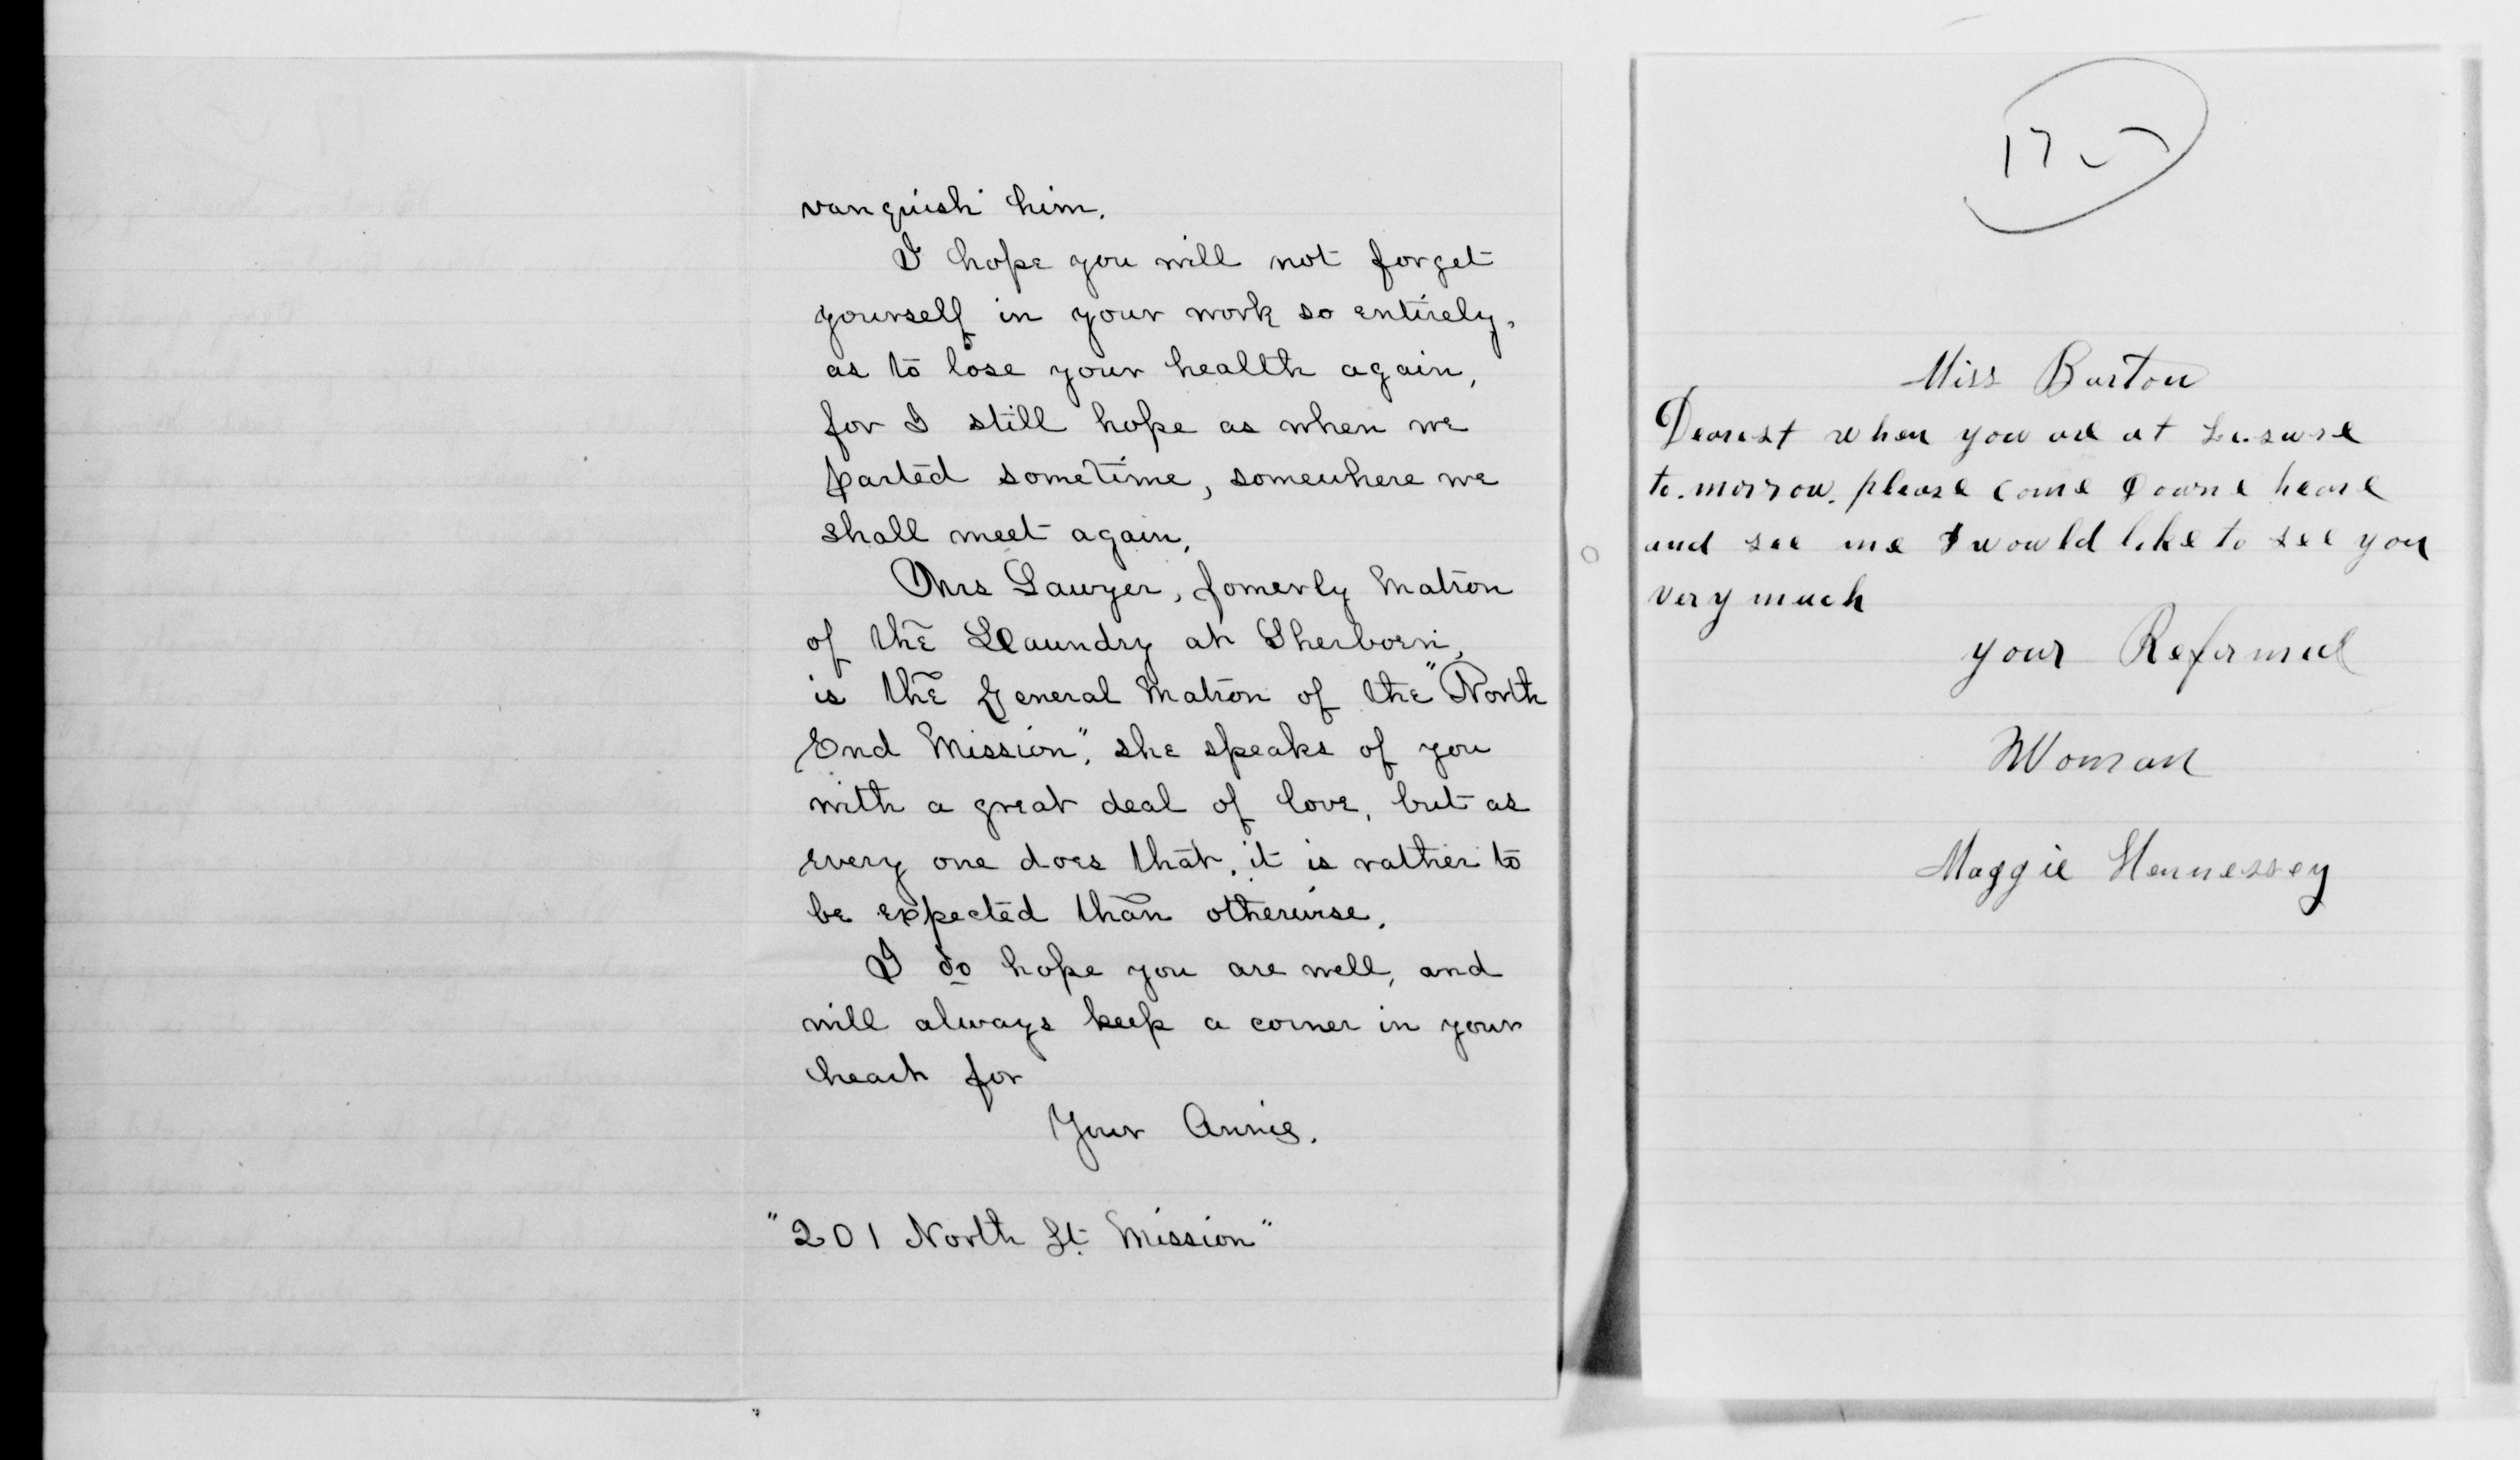 vanquish him.
I hope you will not forget
yourself in your work so entirely,
as to lose your health again,
for I still hope as when we
parted sometime, somewhere we
shall meet again.
Mrs Sawyer, fomerly Matron
of the Laundry at Sherborn,
is the General Matron of the "North
End Mission", she speaks of you
with a great deal of love, but as
every one does that, it is rather to
be expected than otherwise.
I do hope you are well, and
will always keep a corner in your
heart for
Your Annie.
"201 North St. Mission"
Miss Barton
Dearest when you are at Leisure
to.morrow. please come downe heare
and see me I would like to see you
very much
your Reformed
Woman
Maggie Hennessey